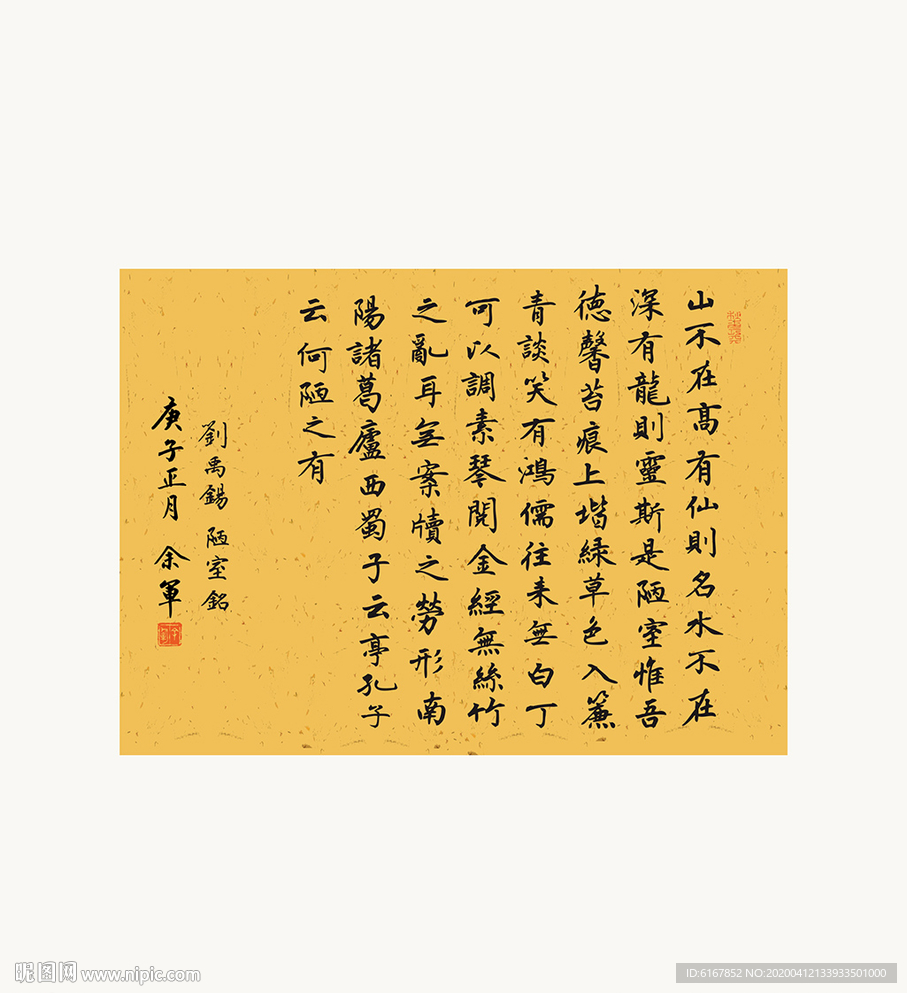 山不在高有仙則名水不在
深有龍則靈斯是陋室惟吾
徳馨苔痕上堦緑草色入簾
青談笑有鴻儒往来無白丁
可以調素琴閱金經無絲竹
之亂耳無案牘之勞形南
陽諸葛廬西蜀子云亭孔子
云何陋之有
劉禹錫 陋室銘
庚子正月 余軍
昵图网 www.nipic.com
ID:6167852 NO:20200412133933501000